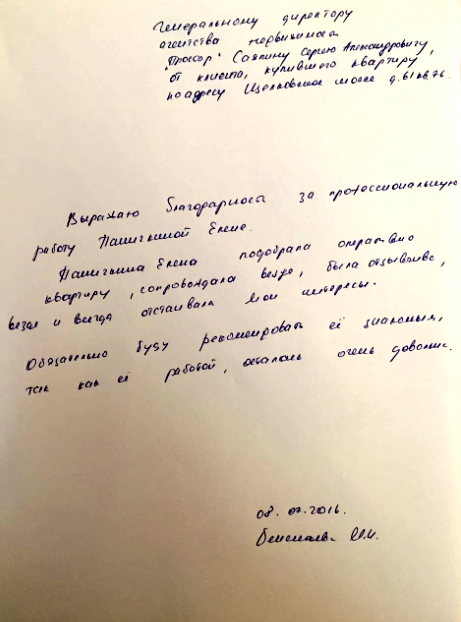 Генеральному директору
агентства недвижимости
"Простор" Саяпину Сергею Александровичу,
от клиента, купившего квартиру
по адресу Щелковское шоссе д.61 кв.76.
Выражаю благодарность за профессиональную
работу Елене.
Елена подобрала оперативно
квартиру, сопровождала везде, была отзывчива,
везде и всегда отстаивала мои интересы.
Обязательно буду рекомендовать её знакомым,
так как её работой, осталась очень довольна.
08.07.2016.